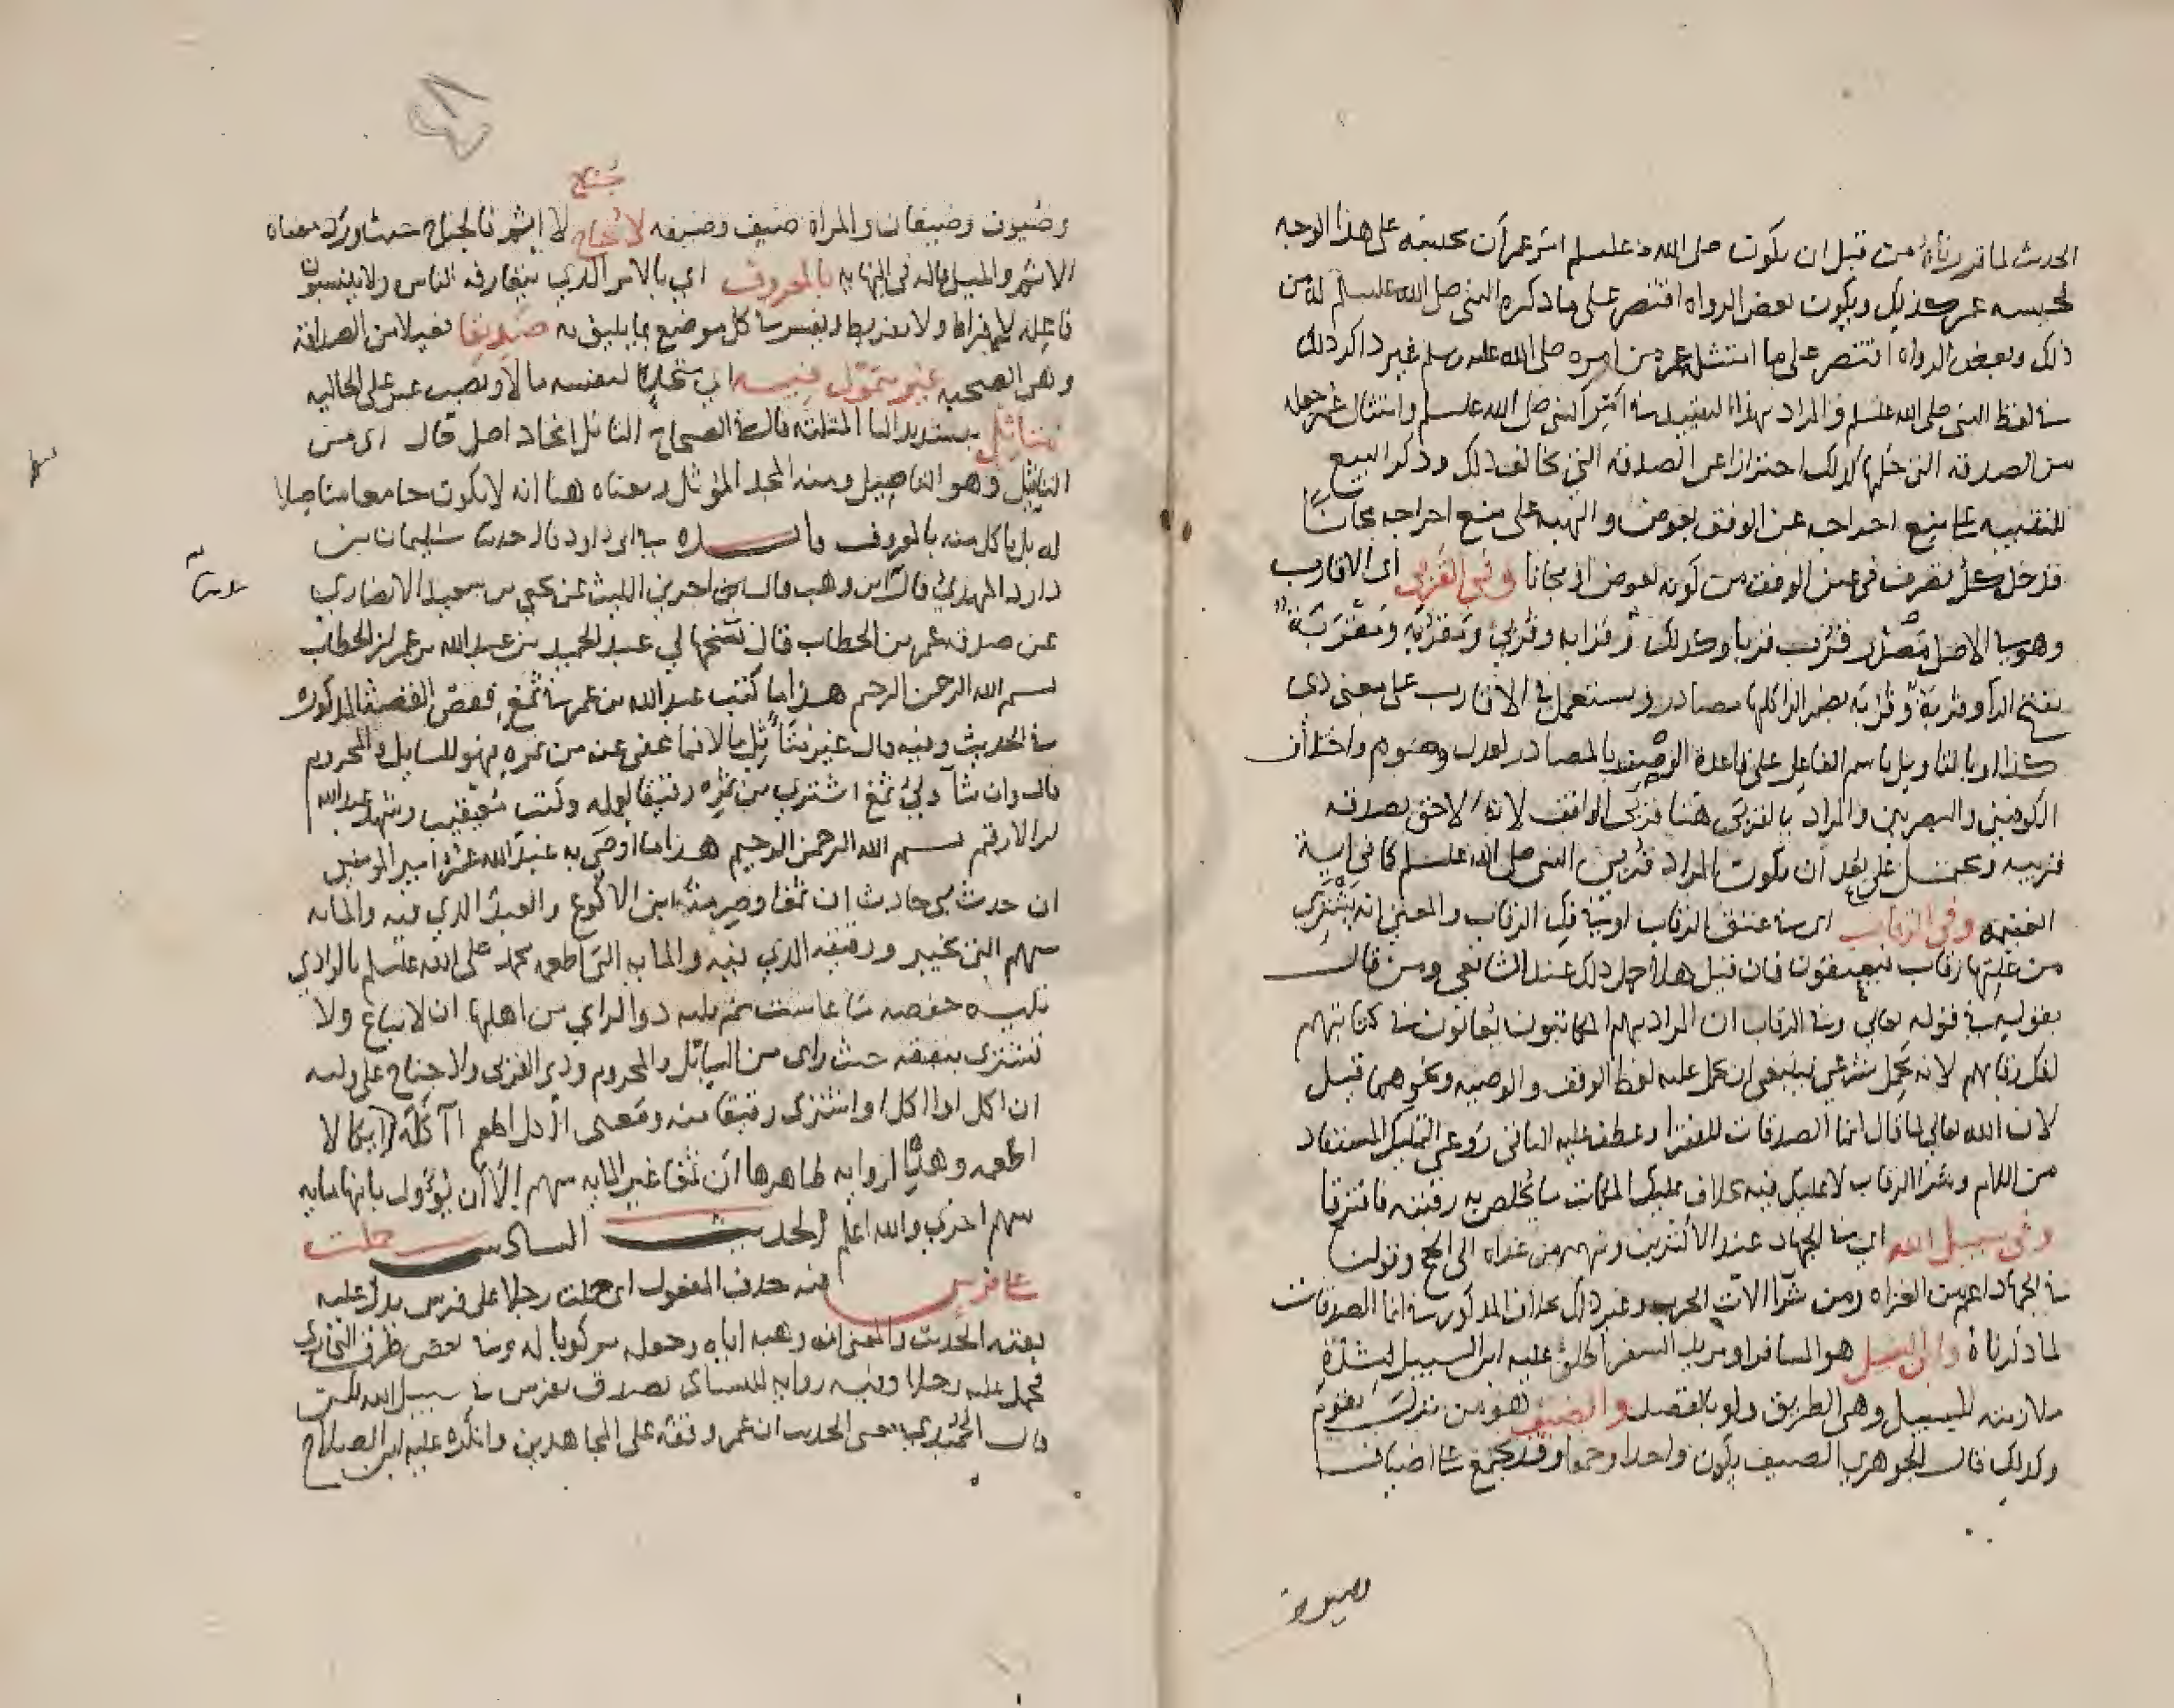 الحديث لما قررناه من قبل ان يكون صلى الله عليه وسلم امر عمر ان يحبسه على هذا الوجه
فحبسه عمر كذلك ويكون بعض الرواه اقتصر على ما ذكره النبي صلى الله عليه وسلم له من
ذلك وبعض الرواه اقتصر على ما امتثل عمر من امره صلى الله عليه وسلم غير ذاكر ذلك
من لفظ النبي صلى الله عليه وسلم والمراد بهذا التقييد امر النبي صلى الله عليه وسلم وامتثال عمر جعله
من الصدقه التي حكمها كذلك احترازا عن الصدقه التي تخالف ذلك وذكر البيع
للتنبيه على منع اخراجه عن الوقف بعوض والهبه على منع اخراجه مجانا
فدخل كل تصرف في عين الوقف من كونه بعوض او مجانا وفي القربى اي الاقارب
وهو في الاصل مصدر قرب قربا وكذلك قرابه وقربى ومقربه ومقربة
بفتح الرا وقربة وقربة بضم الرا كلها مصادر ويستعمل في الاقارب على معنى ذي
كذا او بالتاويل باسم الفاعل على قاعدة الوصف بالمصادر لعدل وصوم واختلاف
الكوفيين والبصريين والمراد بالقربى هنا قربى الواقف لانه الاحق بصدقه
قريبه ويحتمل على بعد ان يكون المراد قربى النبي صلى الله عليه وسلم كما في اية
الغنيمه وفي الرقاب اي في عتق الرقاب او في فك الرقاب والمعنى انه يشترى
من غلتها رقاب فيعتقون فان قيل هلا حمل ذلك عند الشافعي ومن قال
بقوله في قوله تعالى وفي الرقاب ان المراد بهم المكاتبون يعانون في كتابتهم
لفك رقابهم لانه محمل شرعي فينبغي ان يحمل عليه لفظ الوقف والوصيه ونحوهما قيل
لان الله تعالى لما قال انما الصدقات للفقرا وعطف عليه الباقي روعي التمليك المستفاد
من اللام وشرا الرقاب لا تمليك فيه بخلاف تمليك المكاتب ما يخلص به رقبته فافترقا
وفي سبيل الله اي في الجهاد عند الاكثرين ومنهم من عداه الى الحج وقولنا
في الجهاد اعم من الغزاه ومن شرا الات الحرب وغير ذلك بخلاف المذكور في انما الصدقات
لما ذكرناه وابن السبيل هو المسافر او مريد السفر اطلق عليه ابن السبيل لشدة
ملازمته للسبيل وهي الطريق ولو بالقصد والضيف هو من نزل بقوم
وكذلك قال الجوهري الضيف يكون واحدا وجمعا وقد يجمع على اضياف
وضيوف
وضيوف وضيفان والمراة ضيف وضيفه لا جناح لا اثم فالجناح حيث ورد معناه
جناح
الاثم والميل قاله في النهايه بالمعروف اي بالامر الذي يتعارفه الناس ولا ينسبون
فاعله لافراط ولا تفريط ويفسر في كل موضع بما يليق به صديقا فعيلا من الصداقه
وهي الصحبه غير متمول فيه اي متخذا لنفسه مالا ونصب غير على الحاليه
متاثل بتشديد الثا المثلثه قال في الصحاح التاثل اتخاذ اصل قال اي من
التاثيل وهو التاصيل ومنه المجد الموثل ومعناه هنا انه لا يكون جامعا متاصلا
له بل ياكل منه بالمعروف فايده في ابي داود قال حدثنا سليمان بن
داود المهري قال ابن وهب قال اخبرني الليث عن يحيى بن سعيد الانصاري
عن صدقه عمر بن الخطاب قال نسخها لي عبد الحميد بن عبد الله بن عمر بن الخطاب
بسم الله الرحمن الرحيم هذا ما كتب عبد الله بن عمر في ثمغ فقص القصة المذكوره
في الحديث وفيه قال غير متاثل مالا فما عفى عنه من ثمره فهو للسايل والمحروم
قال وان شا ولي ثمغ اشترى من ثمره رقيقا لعمله وكتب معيقيب وشهد عبد الله
بن الارقم بسم الله الرحمن الرحيم هذا ما اوصى به عبد الله عمر امير المومنين
ان حدث بي حادث ان ثمغا وصرمة ابن الاكوع والعبد الذي فيه والمايه
سهم التي بخيبر ورقيقه الذي فيه والمايه التي اطعمه محمد صلى الله عليه وسلم بالوادي
تليه حفصه ما عاشت ثم يليه ذو الراي من اهلها ان لا يباع ولا
يشترى ينفقه حيث راى من السايل والمحروم وذي القربى ولا جناح على وليه
ان اكل او اكل او اشترى رقيقا منه ومعنى
اطعمه وهذه الروايه ظاهرها ان ثمغا غير المايه سهم الا ان يوول بانها مايه
سهم اخرى والله اعلم الحديث السادس حملت
على فرس فيه حذف المفعول اي حملت رجلا على فرس يدل عليه
بقيه الحديث والمعنى انه وهبه اياه وجعله مركوبا له وفي بعض طرق البخاري
فحمل عليه رجلا وفيه روايه للنسائي تصدق بفرس في سبيل الله
قال الحميدي معنى الحديث ان عمر وقفه على المجاهدين وانكره عليه ابن الصلاح